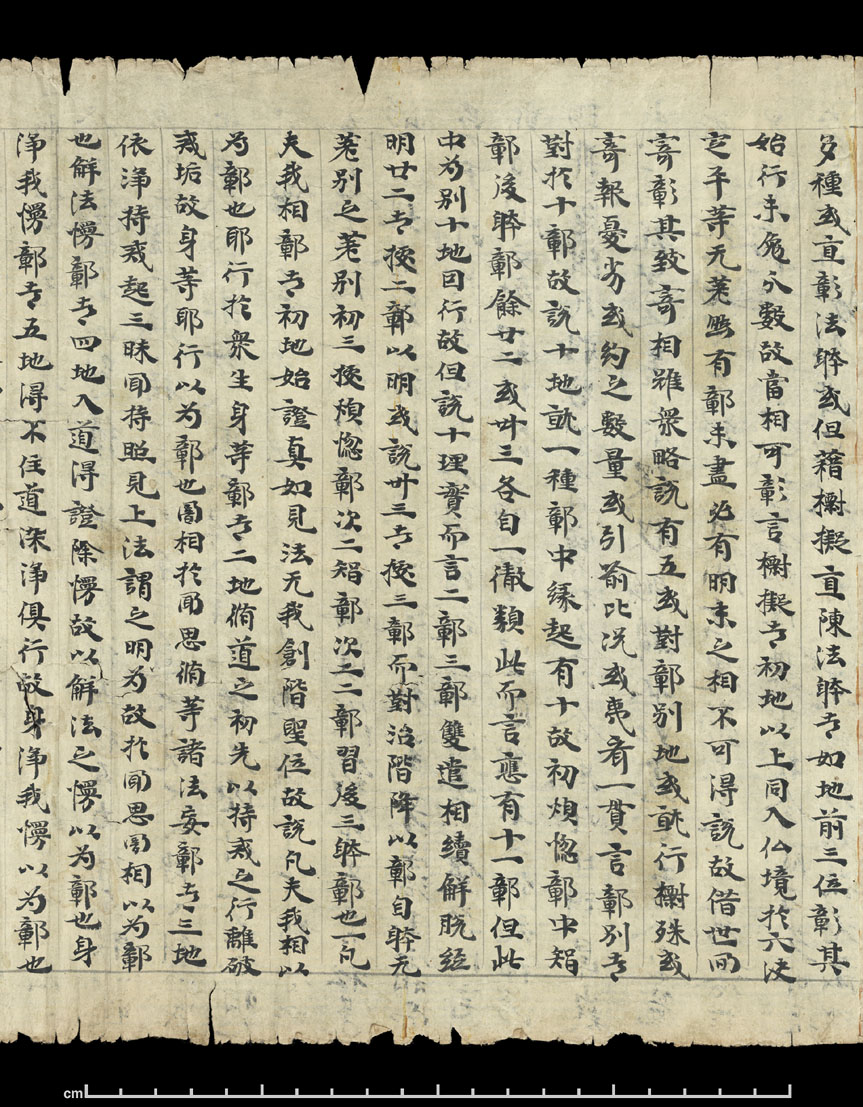 多種或直彰法躰或但藉樹擬直陳法躰者如地前三位彰其
始行未免分數故當相可彰言樹擬者初地以上同入仏境於六決
定平等无差照有鄣未盡必有明未之相不可得說故借世間
寄彰其致寄相雖衆略說有五或對鄣別地或就行樹殊或
寄報憂劣或約之數量或引喻比況或夷有一貫言鄣別者
對於十鄣故說十地就一種鄣中緣起有十故初煩惚鄣中智
鄣後躰鄣餘廿二或卅三各自一徹類此而言應有十一鄣但此
中為別十地因行故但說十理實而言二鄣三鄣雙遣相續解脫經
明廿二者據二鄣以明或說卅三者據三鄣而對治階降以鄣自躰无
差別之差別初三據煩惚鄣次二智鄣次二二鄣習後三躰鄣也一凡
夫我相鄣者初地始證真如見法无我創階聖位故說凡夫我相以
為鄣也耶行於衆生身等鄣者二地脩道之初先以持戒之行離破
戒垢故身等耶行以為鄣也闇相於聞思脩等諸法妄鄣者三地
依淨持戒起三昧聞持照見上法謂之明為故於聞思闇相以為鄣
也解法慢鄣者四地入道得證除慢故以解法之慢以為鄣也身
淨我慢鄣者五地得不住道染淨俱行故身淨我慢以為鄣也